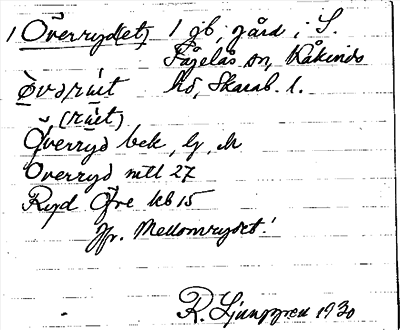 1 Överryd(et) 1 gb, gård i S.
Fågelås sn, Kåkinds
hd, Skarab. l.
(rúet)
Överryd bek, Gg, Ek
Överryd mtl 27
Ryd Öfre kb 15
Jfr. Mellomrydet!
R. Ljunggren 1930